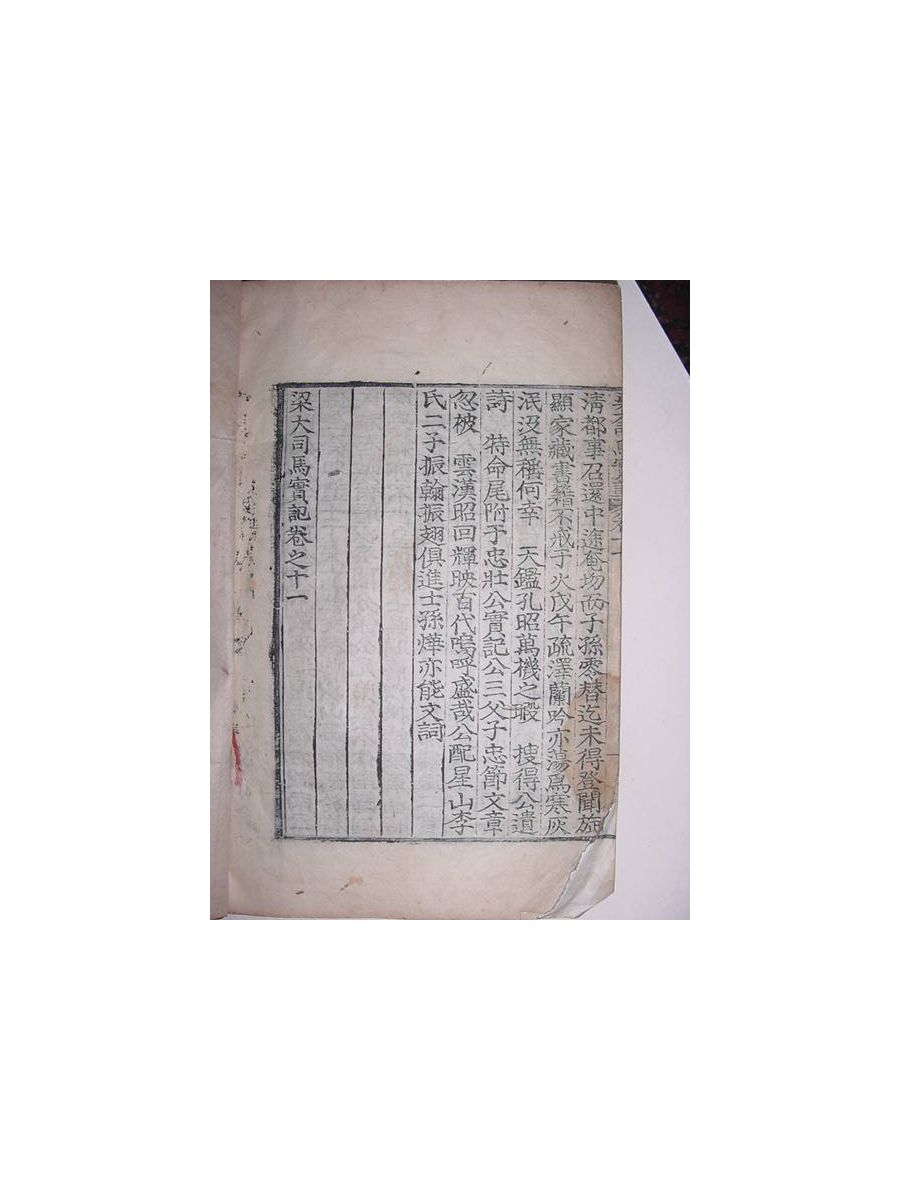 淸都事召還中途奄忽而子孫零替迄未得登聞旌
顯家藏書籍不戒于火戊午疏澤蘭吟亦蕩爲寒灰
泯沒無稱何幸 天鑑孔昭萬機之暇 搜得公遺
詩 特命尾附于忠壯公實記公三父子忠節文章
忽被 雲漢昭回輝映百代嗚呼盛哉公配星山李
氏二子振翰振翅俱進士孫燁亦能文詞
梁大司馬實記卷之十一